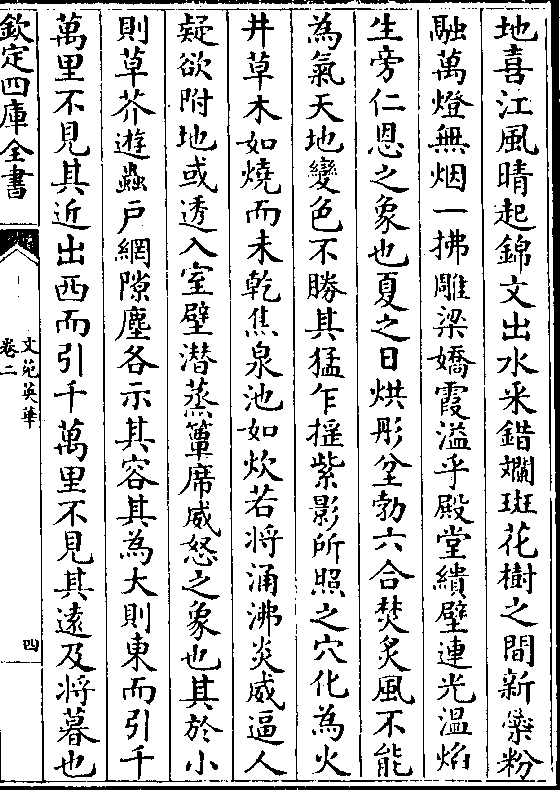 地喜江風晴起錦文出水采錯斕斑花樹之間新蘂粉
融萬燈無烟一拂雕梁嬌霞溢乎殿堂繢壁連光溫焰
生旁仁恩之象也夏之日烘彤坌勃六合焚炙風不能
為氣天地變色不勝其猛乍揺紫影所照之穴化為火
井草木如燒而未乾焦泉池如炊若将涌沸炎威逼人
疑欲附地或透入室壁潜蒸簟席威怒之象也其於小
則草芥遊蟲戶網隙塵各示其容其為大則東而引千
萬里不見其近出西而引千萬里不見其遠及将暮也
欽定四庫全書
文苑英華
卷二
四